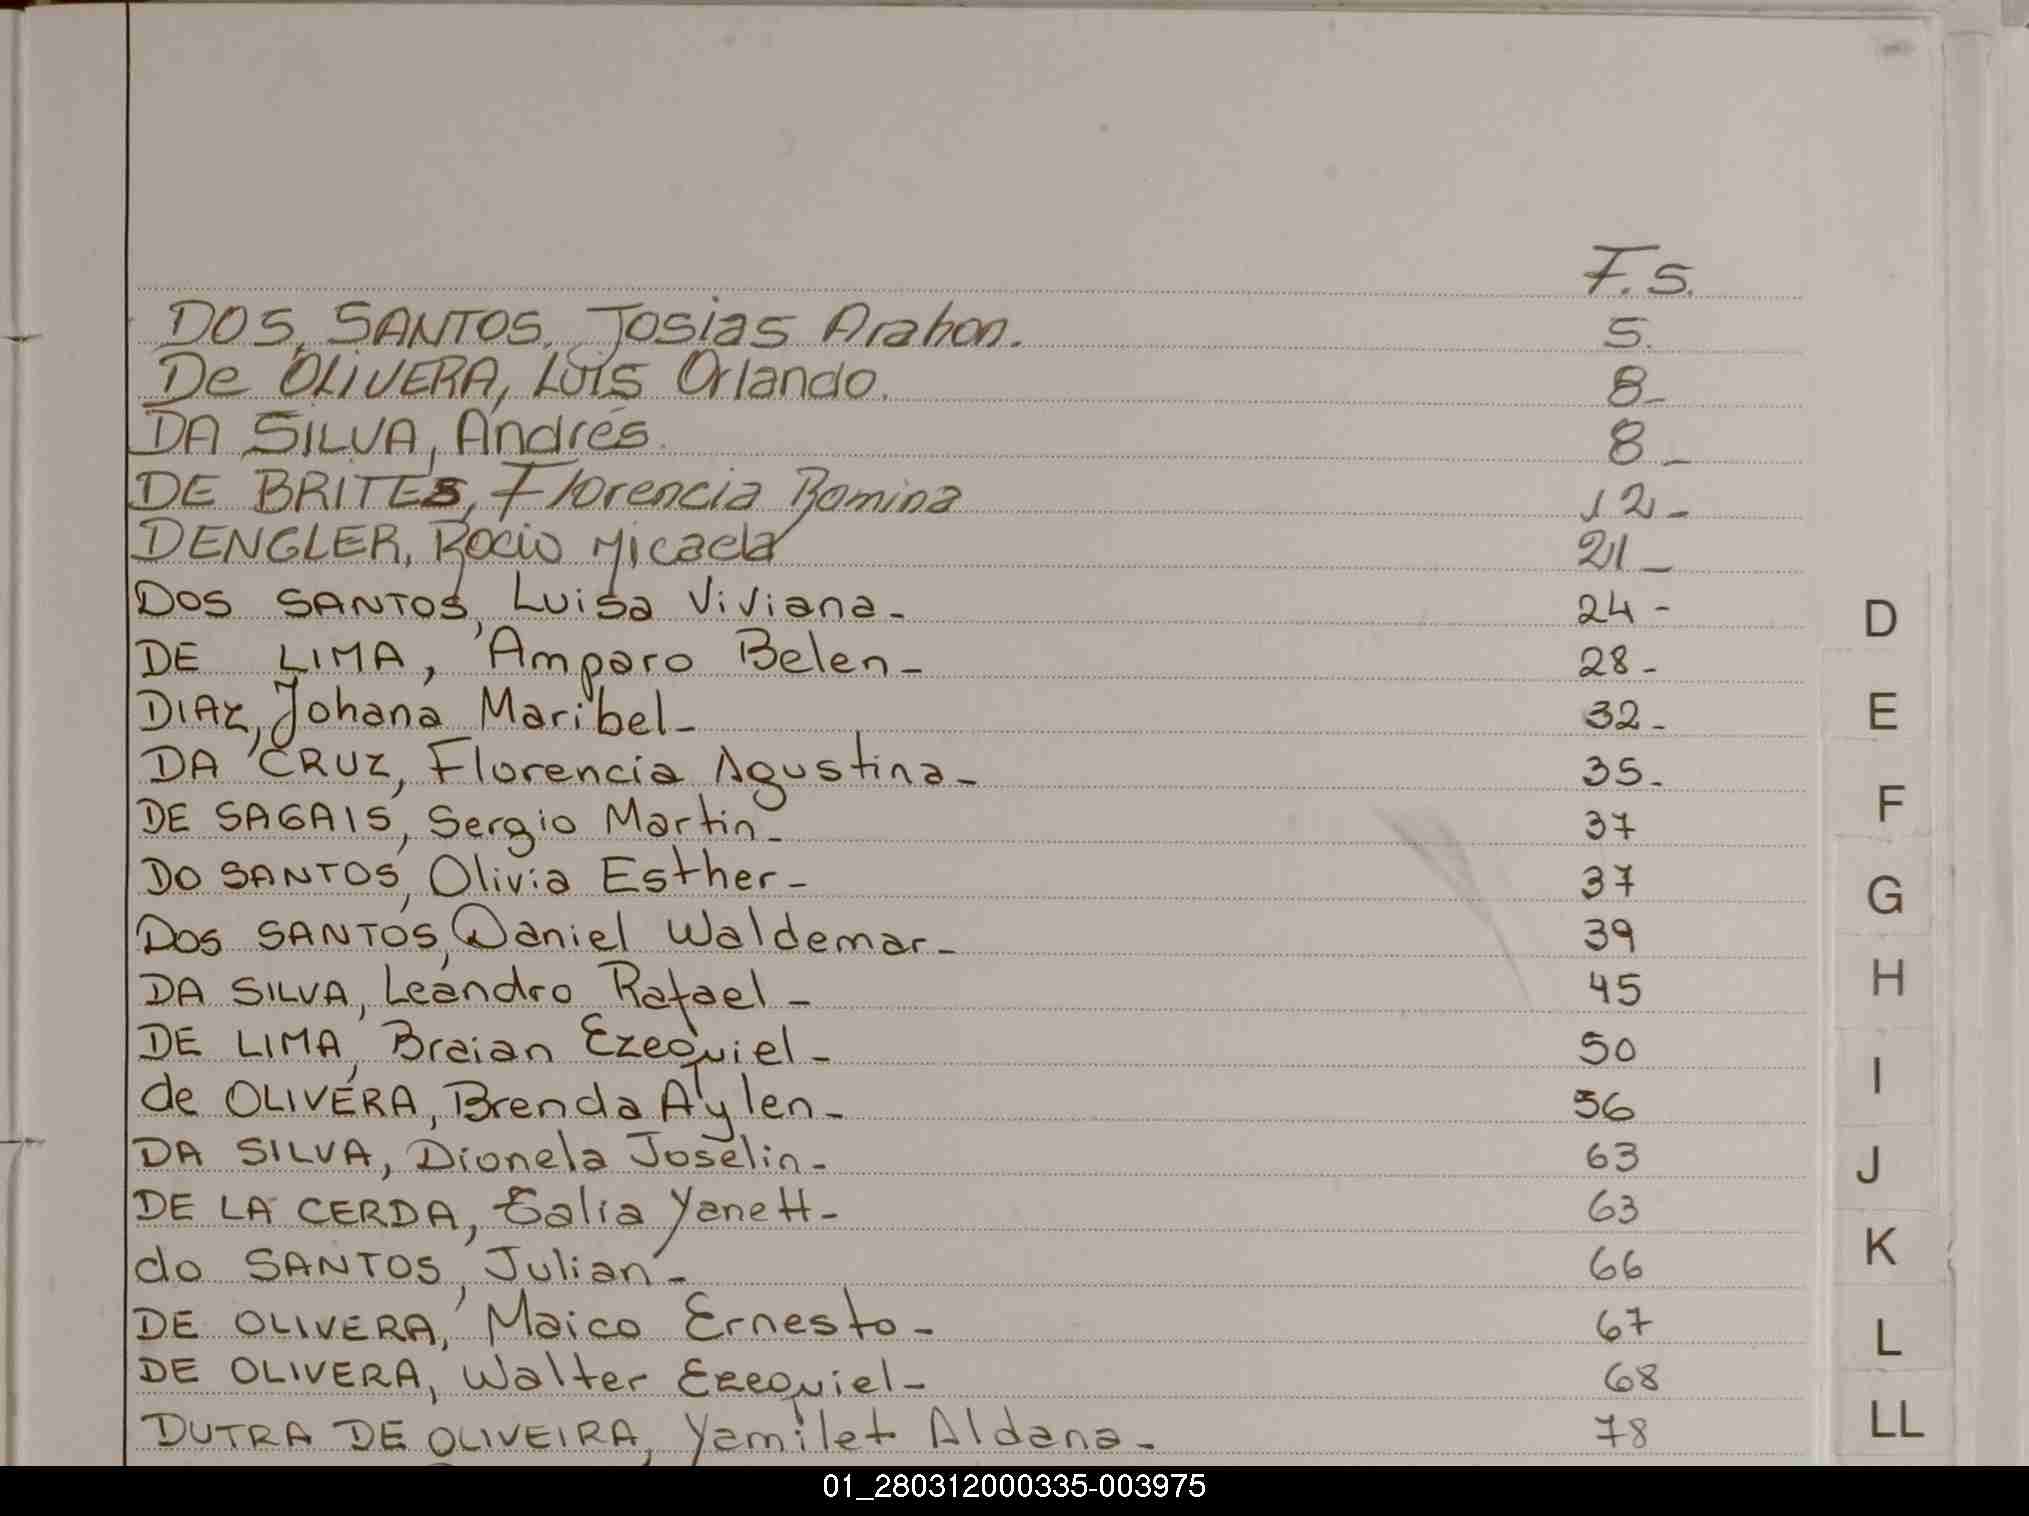 F.S.
DOS, SANTOS, Josias Arahon. 5.
De OLIVERA, Luis Orlando. 8-
DA SILVA, Andrés. 8-
DE BRITES, Florencia Romina 12-
DENGLER, Rocio Micaela 21-
DOS SANTOS, Luisa Viviana- 24-
DE LIMA, Amparo Belen- 28-
DIAZ, Johana Maribel- 32-
DA CRUZ, Florencia Agustina- 35-
DE SAGAIS, Sergio Martin- 37
DO SANTOS, Olivia Esther- 37
DOS SANTOS, Daniel Waldemar- 39
DA SILVA, Leandro Rafael- 45
DE LIMA, Braian Ezequiel- 50
de OLIVERA, Brenda Aylen- 56
DA SILVA, Dionela Joselin- 63
DE LA CERDA, Galia Yanett- 63
do SANTOS, Julian- 66
DE OLIVERA, Maico Ernesto- 67
DE OLIVERA, Walter Ezequiel- 68
DUTRA DE OLIVEIRA, Yamilet Aldana- 78
D
E
F
G
H
I
J
K
L
LL
01_280312000335-003975